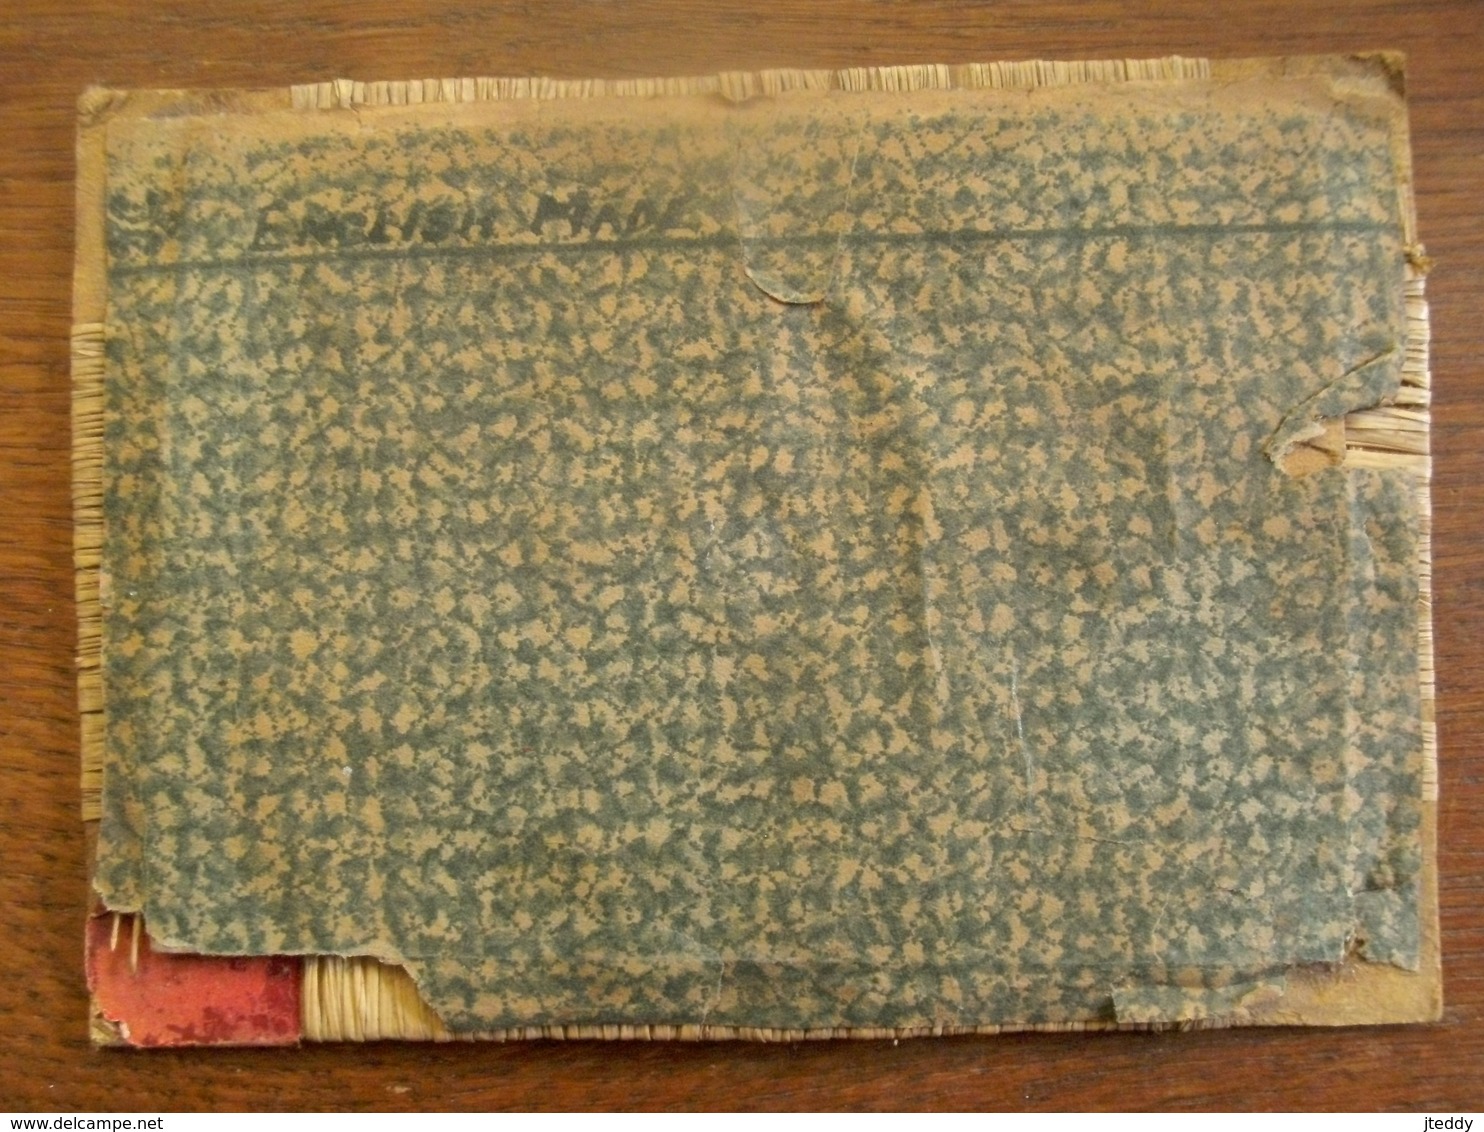 ENGLISH MADE
delcampe.net
jteddy